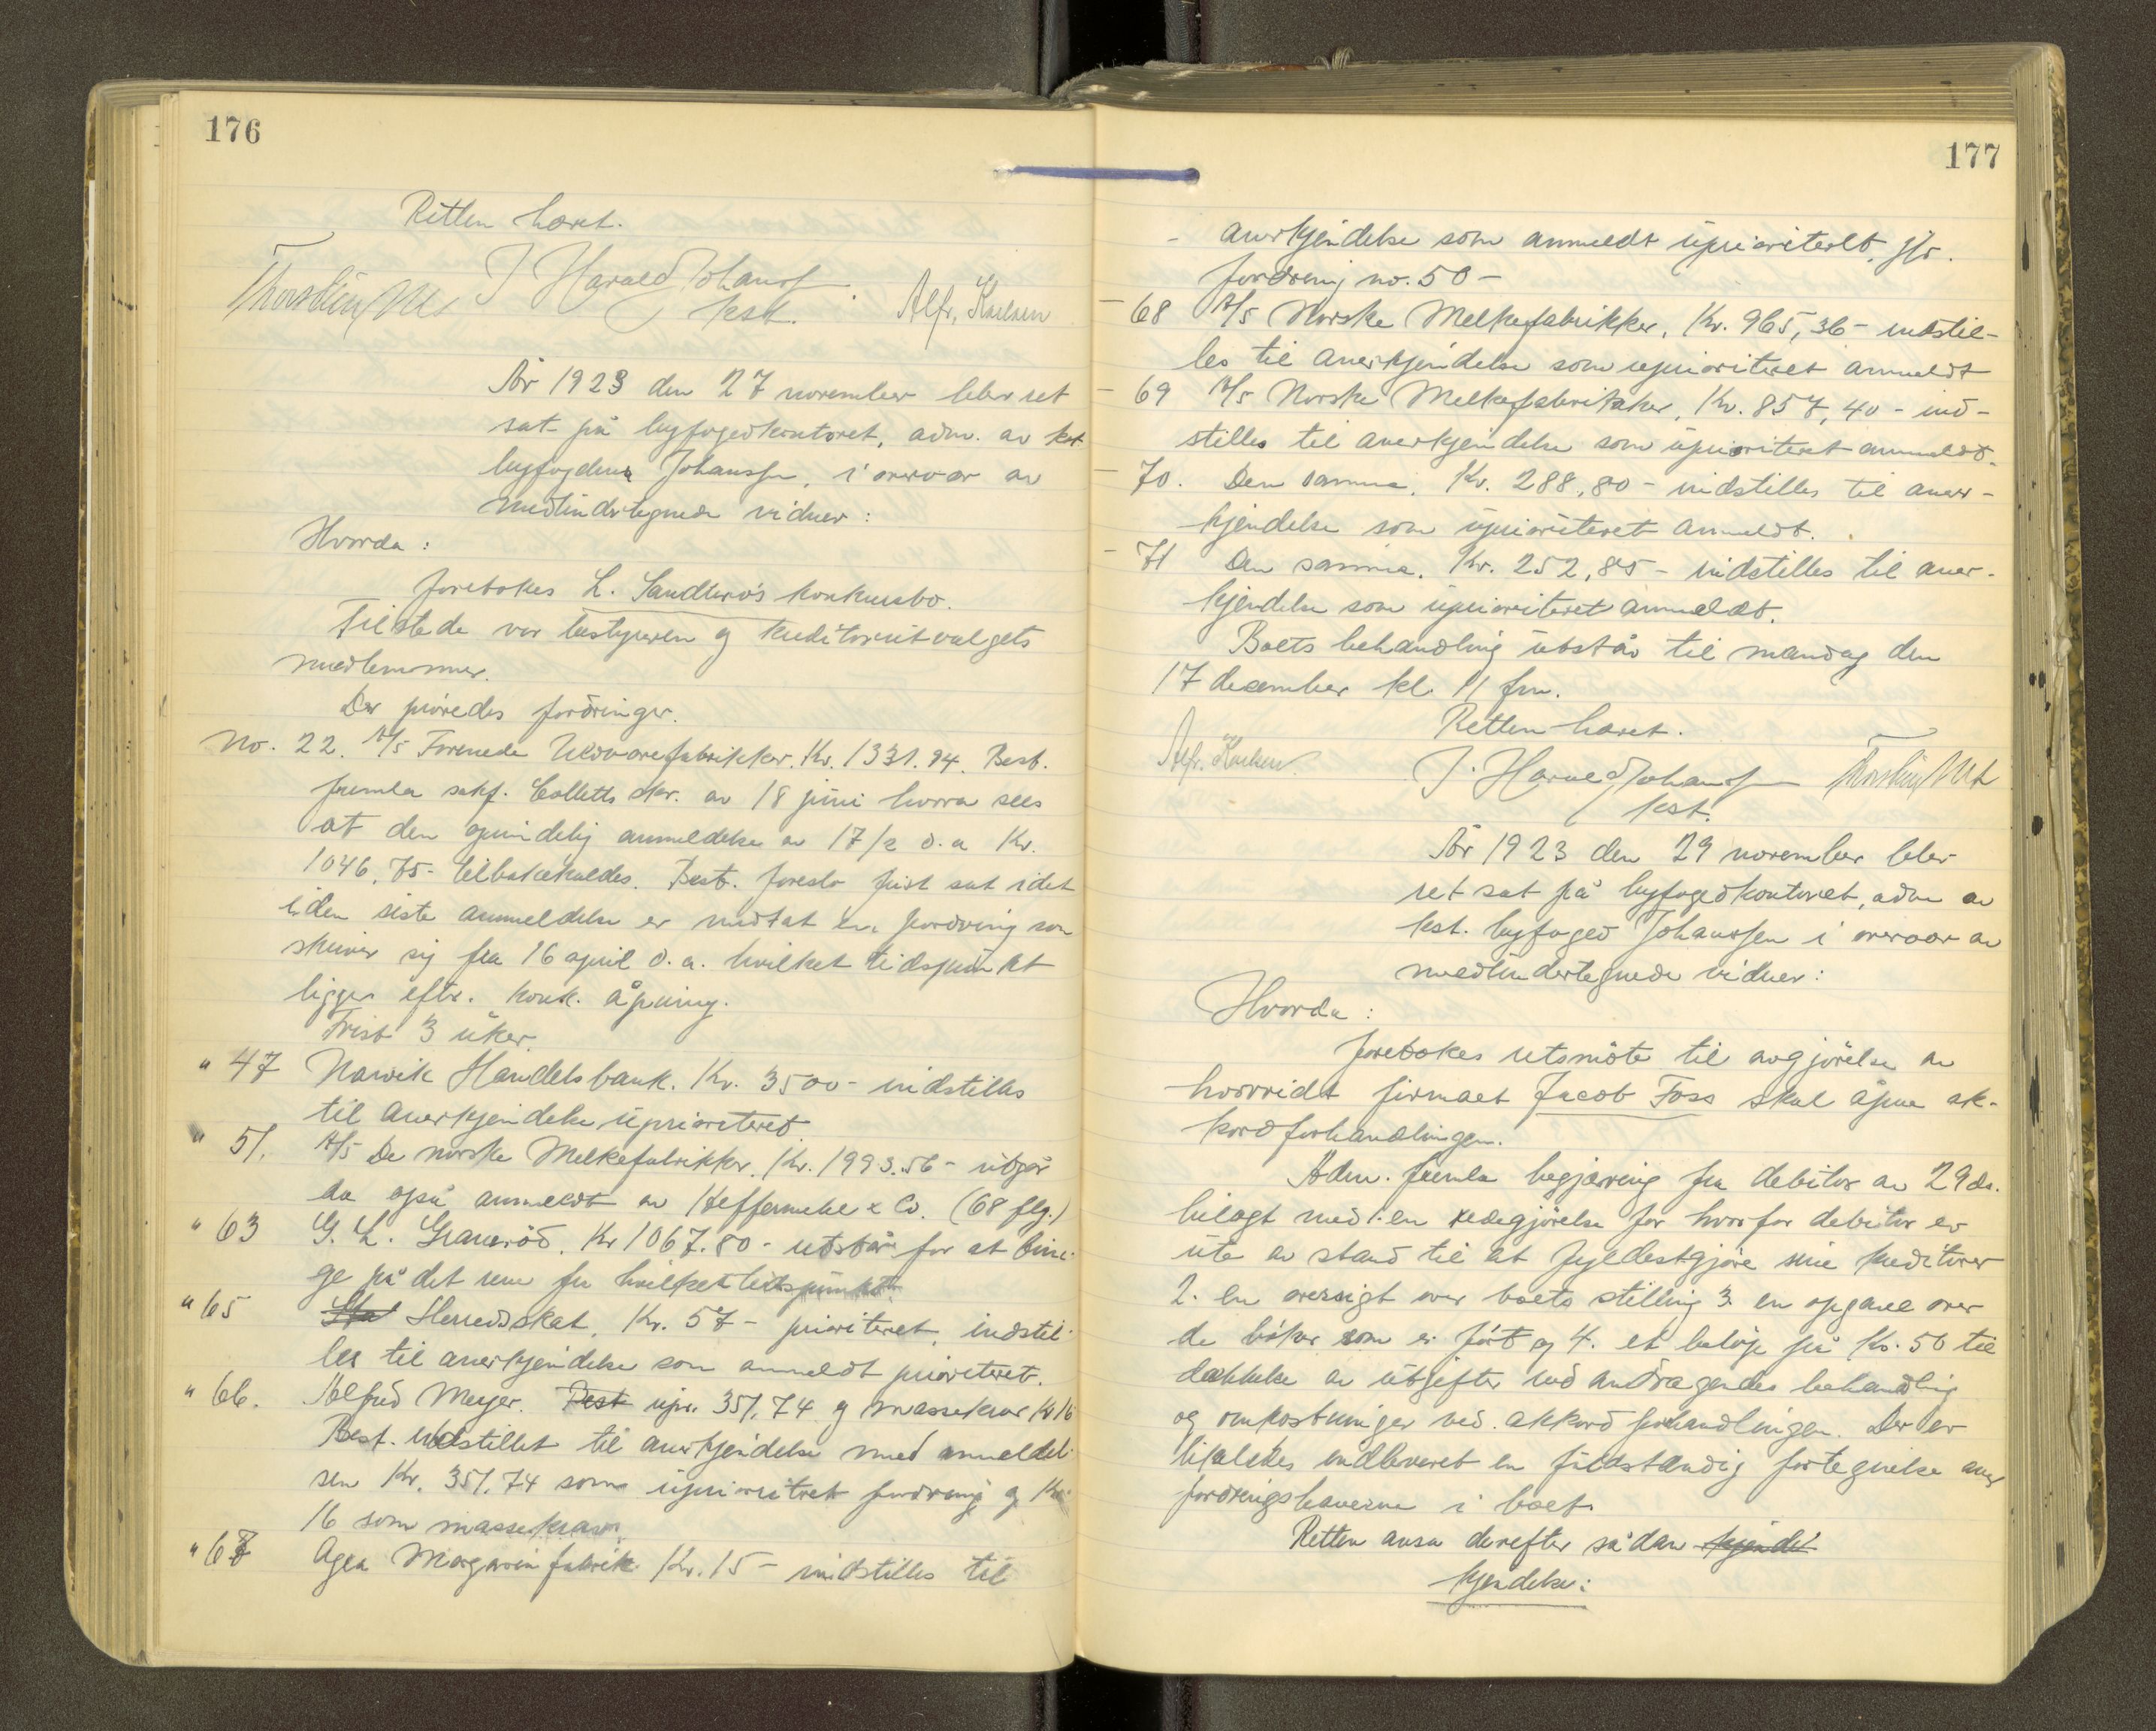 176
Retten hævet.
J Harald Johanss
kst.
Alfr. Karlsen
År 1923 den 27 november blev ret
sat på byfogedkontoret, adm. av kst.
byfogden Johanssen, i overvær av
medundertegnede vidner:
Hvorda:
foretokes L. Sandberg's konkursbo.
Tilstede var bestyreren og kreditorutvalgets
medlemmer.
Der prøvedes fordringer.
No. 22. A/S Forenede Uldvarefabrikker. Kr. 1331.94. Best.
fremla sakf. Colletts skr. av 18 juni hvorav sees
at den oprindelig anmeldelse av 17/2 d.a. Kr.
1046,75- tilbakekaldes. Best. foreslo frist sat idet
i den siste anmeldelse er medtat en fordring som
skriver sig fra 16 april d.a. hvilket tidspunkt
ligger efter konk. åpning.
Frist 3 uker.
" 47 Narvik Handelsbank. Kr. 3500- indstilles
til anerkjendelse uprioriteret
" 51. A/S De norske Melkefabrikker. Kr. 1993.56- utgår
da også anmeldt av & Co. (68 flg.)
" 63 G. L. Kr 1067.80- utstår for at bring-
ge på det rene fra hvilket tidspunkt
" 65 Herredsskat. Kr. 57- prioriteret, indstil-
les til anerkjendelse som anmeldt prioriteret.
" 66. Alfred Meyer. Best upr. 351.74 og massekrav Kr 16
Best. indstillet til anerkjendelse med anmeldel-
sen Kr. 351.74 som uprioritret fordring og Kr.
16 som massekrav.
" 67 Agra Margarinfabrik Kr. 15- indstilles til
177
- anerkjendelse som anmeldt uprioriteret, jfr.
fordring no. 50-
- 68 A/S Norske Melkefabrikker. Kr. 965,36- indstil-
les til anerkjendelse som uprioriteret anmeldt
- 69 A/S Norske Melkefabrikker. Kr. 857,40- ind-
stilles til anerkjendelse som uprioriteret anmeldt.
- 70. Den samme. Kr. 288,80- indstilles til aner-
kjendelse som uprioriteret anmeldt.
- 71 Den samme. Kr. 252,85- indstilles til aner-
kjendelse som uprioriteret anmeldt.
Boets behandling utstår til mandag den
17 december kl. 11 fm.
Retten hævet.
Alfr. Karlsen
J. Harald Johanss
kst.
År 1923 den 29 november blev
ret sat på byfogedkontoret, adm av
kst. byfoged Johanssen i overvær av
medundertegnede vidner:
Hvorda:
foretokes retsmøte til avgjørelse av
hvorvidt firmaet Jacob Foss skal åpne ak-
kordforhandlinger.
Adm. fremla begjæring fra debitor av 29 ds.
bilagt med 1. en redegjørelse for hvorfor debitor er
ute av stand til at fyldestgjøre sine kreditorer
2. en oversigt over boets stilling 3. en opgave over
de bøker som er ført og 4. et beløp på Kr. 50 til
dækkelse av utgifter ved andragendes behandling
og omkostninger ved akkordforhandlingen. Der er
likeledes indleveret en fuldstændig fortegnelse over
fordringshaverne i boet.
Retten avsa derefter sådan kjendel
kjendelse: